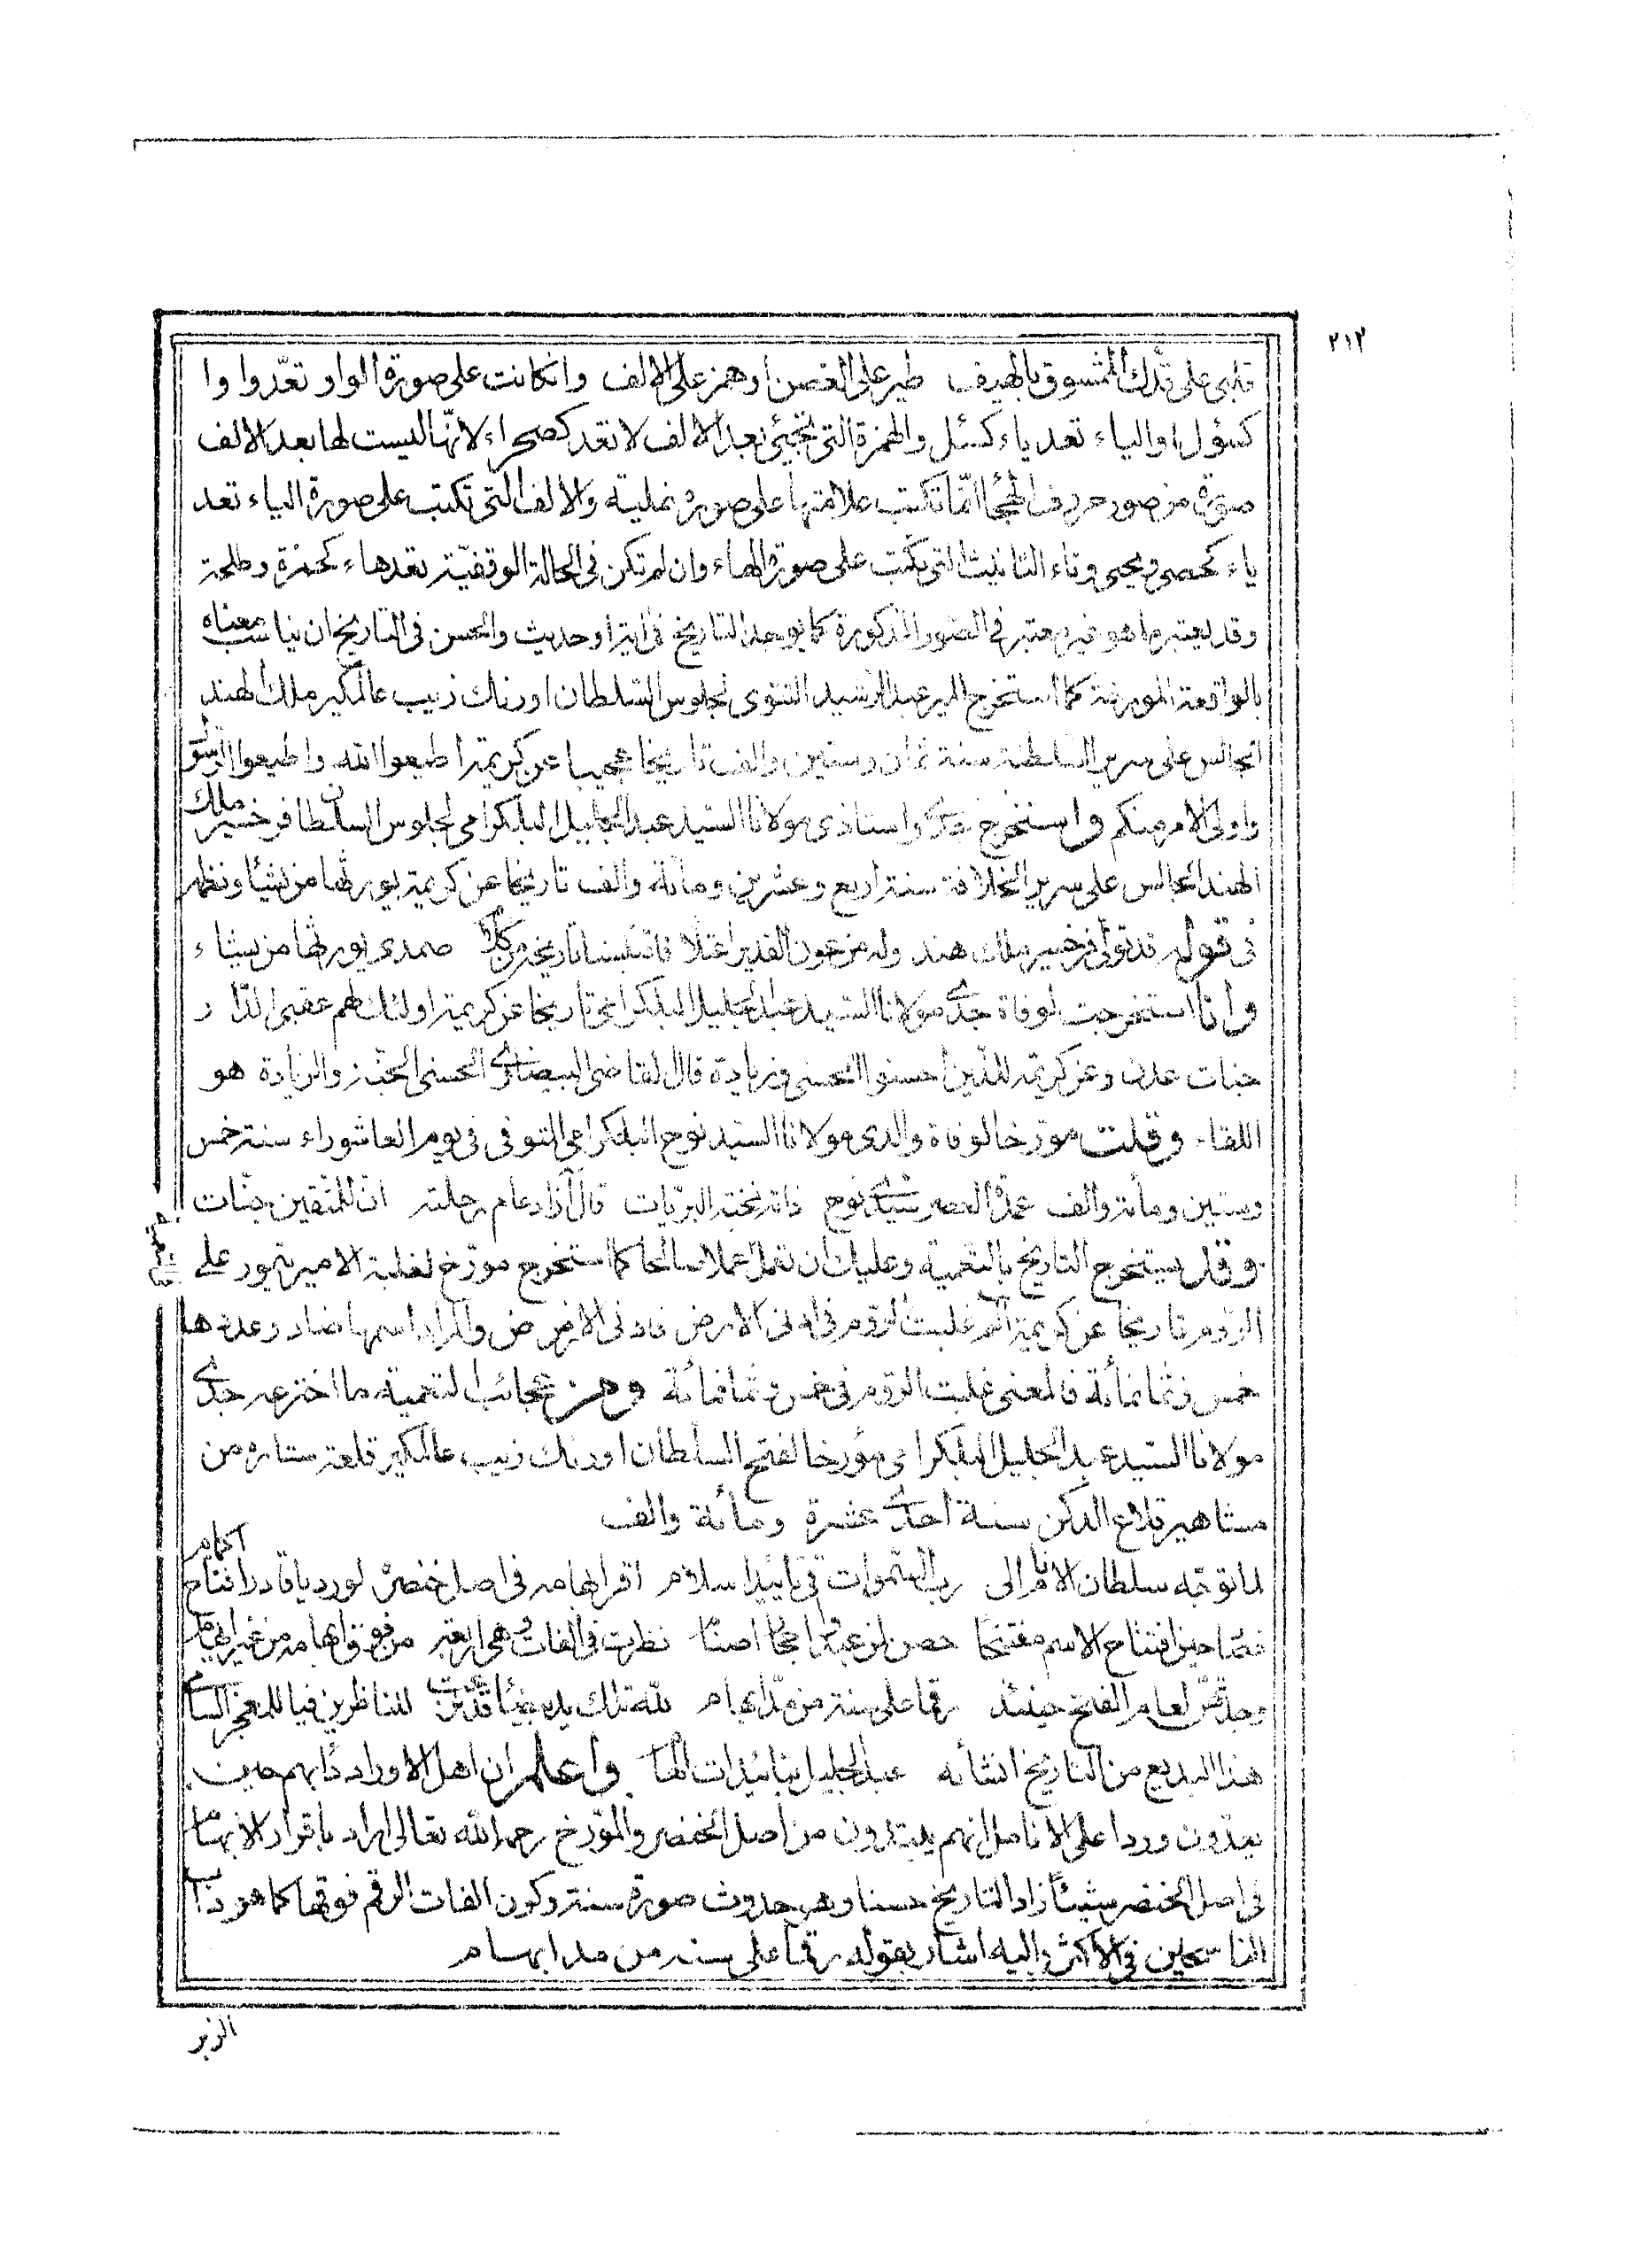 ٢١٢
قلبى على قدّك الممشوق بالهيف طير على الغصن او همز على الالف وانكانت على صورة الواو تعدّ واوا
كسؤل او الياء تعد ياء كسئل والهمزة التى تجيئ بعد الالف لا تعد كصحراء لانّها ليست لها بعد الالف
صورة من صور حروف انّما تكتب علامتها على صورة نملية والالف التى تكتب على صورة الياء تعد
ياء كحصى ويحيى وتاء التانيث التى تكتب على صورة الهاء وان لم تكن فى الحالة الوقفيّة تعد هاء كحمزة وطلحة
وقد يعتبر ما هو غير معتبر فى الصور المذكورة كما يوجد التاريخ فى اية او حديث والحسن فى التاريخ ان يناسب معناه
بالواقعة المورخة كما استخرج المير عبد الرشيد التتوى لجلوس السّلطان اورنك زيب عالمكير ملك الهند
الجالس على سرير السلطنة سنة ثمان وستين والف تاريخا عجيبا عن كريمة اطيعوا الله واطيعوا الرسول
واولى الامر منكم واستخرج جدّى واستاذى مولانا السّيد عبد الجليل البلكرامى لجلوس السلطان فرخسير ملك
الهند الجالس على سرير الخلافة سنة اربع وعشرين ومائة والف تاريخا عن كريمة يورثها من يشاء ونظم
فى قوله قد تولّى فرخسير ملك هند وله من عون القدير اعتلاء فاقتبسنا تاريخه من كلام صمدى يورثها من يشاء
وانا استخرجت لوفاة جدّى مولانا السّيد عبد الجليل البلكرامى تاريخا عن كريمة اولئك لهم عقبى الدّار
جنات عدن وعن كريمة للّذين احسنوا الحسنى وزيادة قال القاضى البيضاوى الحسنى الجنّة والزيادة هو
اللقاء وقلت مورّخا لوفاة والدى مولانا السّيد نوح البلكرامى المتوفى فى يوم العاشوراء سنة خمس
وستين ومأئة والف عمدة العصر سيّدى نوح ذاته نخبة البريّات قال آزاد عام رحلته انّ للمتّقين جنّات
وقد يستخرج التاريخ بالتعمية وعليك ان تعمل عملا صالحا كما استخرج مورّخ لغلبة الامير تيمور على
الرّوم تاريخا عن كريمة الم غلبت الرّوم فى ادنى الارض فادنى الارض ض والمراد اسمها ضاد وعددها
خمس وثمانمأئة فالمعنى غلبت الرّوم فى خمس وثمانمائة ومن عجائب التعمية ما اخترعه جدّى
مولانا السّيد عبد الجليل البلكرامى مؤرخا لفتح السلطان اورنك زيب عالمكير قلعة ستاره من
مشاهير قلاع الدكن سنة احدى عشرة ومأئة والف
لما توجّه سلطان الانام الى ربّ السّموات فى تائيد اسلام اقرّ ابهامه فى اصل خنصره لورد يا قادر افتتاح
حين افتتاح الاسم مفتتحًا حصن نظرت فى الفات وهى اربعة من فوق ابهامه من غير
لعام الفتح حينئذ رقما على سنة من مدّ ابهام للّه تلك يد بيضاء للناظرين فيا للمعجز السامى
هذا البديع من التاريخ انشأه عبد الجليل بتائيدات واعلم ان اهل الاوراد دأبهم حين
يعدّون وردا على الانامل انهم يبتدؤن من اصل الخنصر والمورّخ رحمه الله تعالى اراد باقرار الابهام
فى اصل الخنصر شيئًا زاد التاريخ حسنا وهو حدوث صورة سنة وكون الفات الرقم فوقها كما هو دأب
الناسخين فى الاكثر واليه اشار بقوله رقما على سنة من مدا بهام
الزبر